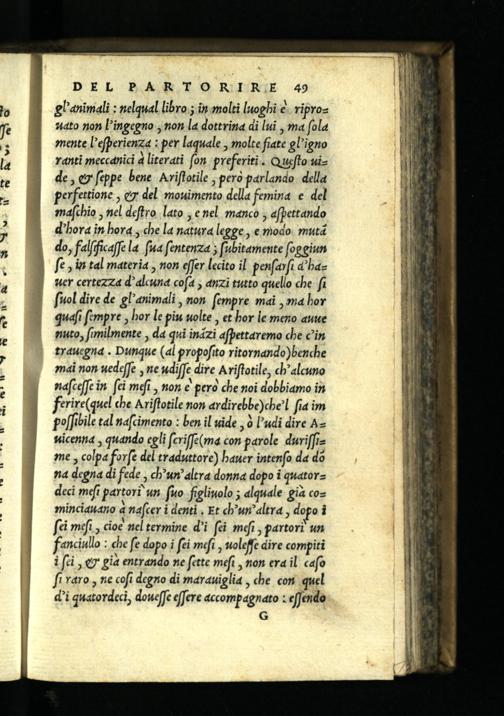 DEL PARTORIRE 49
gl'animali : nelqual libro ; in molti luoghi è ripro=
uato non l'ingegno , non la dottrina di lui , ma sola
mente l'esperienza : per laquale , molte fiate gl'igno
ranti meccanici à literati son preferiti . Questo ui=
de , & seppe bene Aristotile , però parlando della
perfettione , & del mouimento della femina e del
maschio , nel destro lato , e nel manco , aspettando
d'hora in hora , che la natura legge , e modo mutā
do, falsificasse la sua sentenza ; subitamente soggiun
se , in tal materia , non esser lecito il pensarsi d'ha=
uer certezza d'alcuna cosa , anzi tutto quello che si
suol dire de gl'animali , non sempre mai , ma hor
quasi sempre , hor le piu uolte , et hor le meno auue
nuto, similmente , da qui ināzi aspettaremo che c'in
trauegna . Dunque (al proposito ritornando)benche
mai non uedesse , ne udisse dire Aristotile, ch'alcuno
nascesse in sei mesi , non è però che noi dobbiamo in
ferire(quel che Aristotile non ardirebbe)che'l sia im
possibile tal nascimento : ben il uide , ò l'udi dire A=
uicenna , quando egli scrisse(ma con parole durissi=
me , colpa forse del traduttore) hauer intenso da dō
na degna di fede , ch'un'altra donna dopo i quator=
deci mesi partorì un suo figliuolo ; alquale già co=
minciauano à nascer i denti . Et ch'un'altra , dopo i
sei mesi , cioè nel termine d'i sei mesi , partorì un
fanciullo : che se dopo i sei mesi , uolesse dire compiti
i sei , & già entrando ne sette mesi , non era il caso
si raro , ne cosi degno di marauiglia , che con quel
d'i quatordeci, douesse essere accompagnato : essendo
G